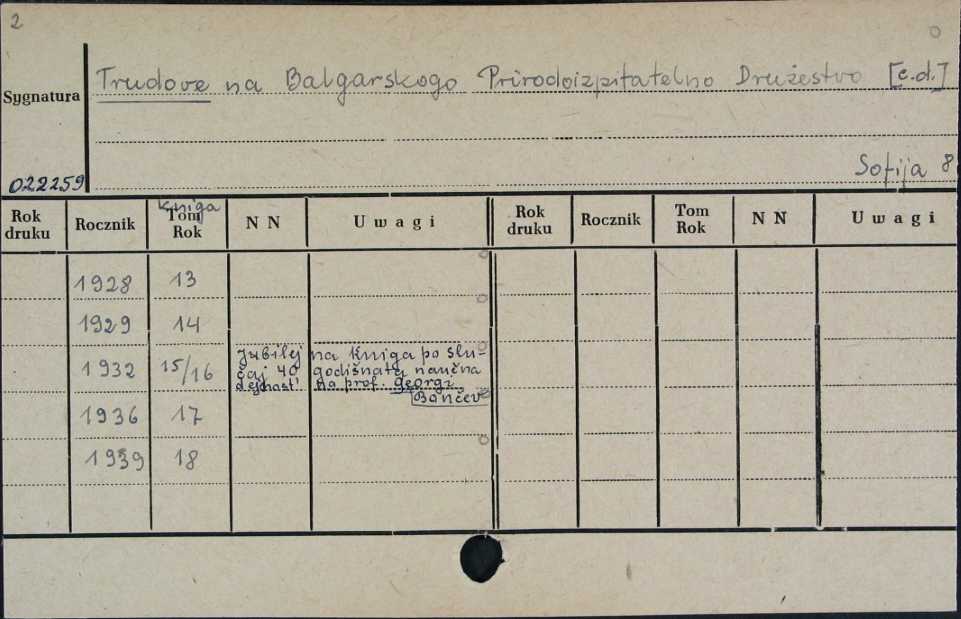 2
Trudove na Balgarskogo Prirodoizpitatelno Družestvo [c.d.]
Sygnatura
022259
Sofija 8°
Rok druku Rocznik Kniga Tom Rok N N U w a g i Rok druku Rocznik Tom Rok N N U w a g i
1928 13
1929 14
1932 15/16 Jubilej na Kniga po slu-
čaj 40 godišnata naučna
dejnast' na prof. Georgi
Bončev
1936 17
1939 18